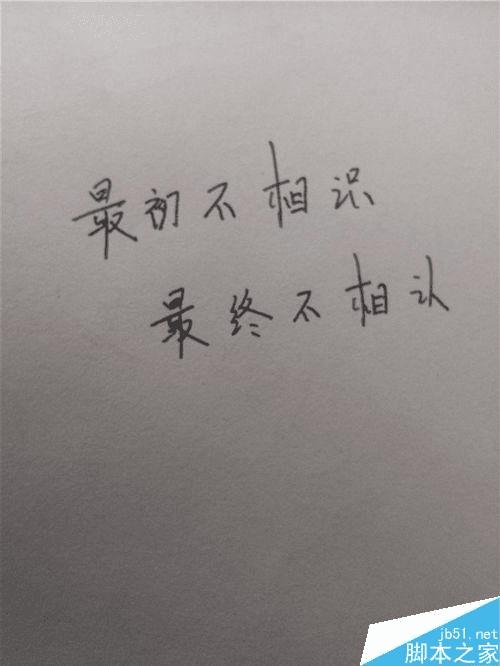 最初不相识
最终不相认
jb51.net
脚本之家